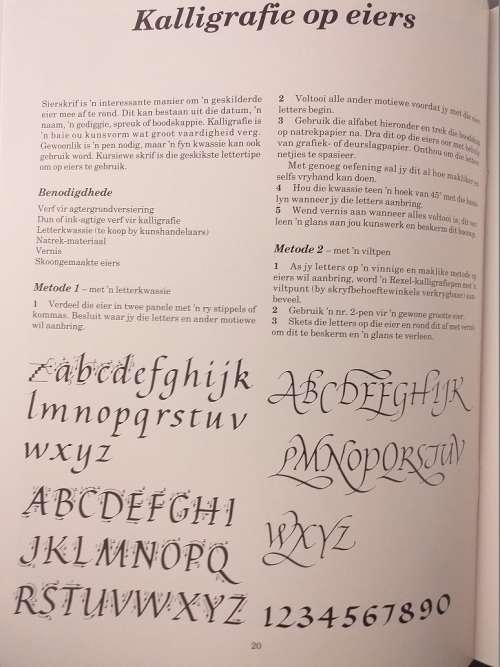 Kalligrafie op eiers
Sierskrif is 'n interessante manier om 'n geskilderde
eier mee af te rond. Dit kan bestaan uit die datum, 'n
naam, 'n gediggie, spreuk of boodskappie. Kalligrafie is
'n baie ou kunsvorm wat groot vaardigheid verg.
Gewoonlik is 'n pen nodig, maar 'n fyn kwassie kan ook
gebruik word. Kursiewe skrif is die geskikste lettertipe
om op eiers te gebruik.
Benodigdhede
Verf vir agtergrondversiering
Dun of ink-agtige verf vir kalligrafie
Letterkwassie (te koop by kunshandelaars)
Natrek-materiaal
Vernis
Skoongemaakte eiers
Metode 1 – met 'n letterkwassie
1 Verdeel die eier in twee panele met 'n ry stippels of
kommas. Besluit waar jy die letters en ander motiewe
wil aanbring.
2 Voltooi alle ander motiewe voordat jy met die
letters begin.
3 Gebruik die alfabet hieronder en trek die
op natrekpapier na. Dra dit op die eiers oor met
van grafiek- of deurslagpapier. Onthou om die letters
netjies te spasieer.
Met genoeg oefening sal jy dit al hoe makliker en
selfs vryhand kan doen.
4 Hou die kwassie teen 'n hoek van 45° met die
lyn wanneer jy die letters aanbring.
5 Wend vernis aan wanneer alles voltooi is; dit
leen 'n glans aan jou kunswerk en beskerm dit
Metode 2 – met 'n viltpen
1 As jy letters op 'n vinnige en maklike metode op
eiers wil aanbring, word 'n Rexel-kalligrafiepen met 'n
viltpunt (by skryfbehoeftewinkels verkrygbaar) aan-
beveel.
2 Gebruik 'n nr. 2-pen vir 'n gewone grootte eier.
3 Skets die letters op die eier en rond dit af met vernis
om dit te beskerm en 'n glans te verleen.
abcdefghijk
lmnopqrstuv
wxyz
ABCDEFGHI
JKLMNOPQ
RSTUVWXYZ
ABCDEFGHIJK
LMNOPQRSTUV
WXYZ
1234567890
20